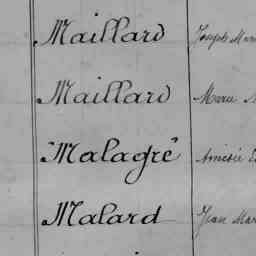 Maillard Joseph
Maillard Marie
"Malagré"
Malard Jean Mar